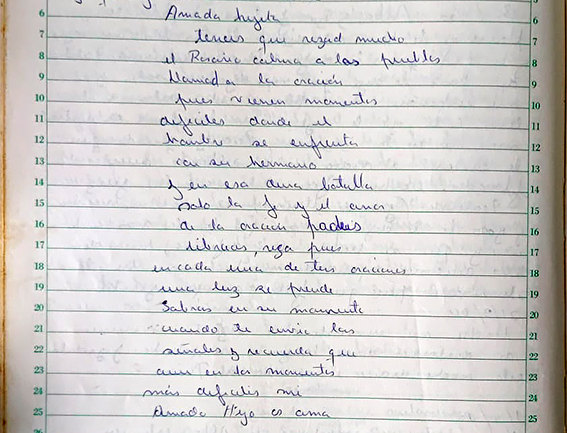 Amada hijita
teneis que rezad mucho
el Rosario calma a los pueblos
Llamad a la oración
pues vienen momentos
dificiles donde el
hombre se enfrenta
con su hermano
y en esa dura batalla
Solo la fe y el amor
de la oración podeis
libraros, reza pues
en cada una de tus oraciones
una luz se prende
Sabras en su momento
cuando te envie las
señales y recuerda que
aun en los momentos
más dificiles mi
Amado Hijo os ama
6
7
8
9
10
11
12
13
14
15
16
17
18
19
20
21
22
23
24
25
5
6
7
8
9
10
11
12
13
14
15
16
17
18
19
20
21
22
23
24
25